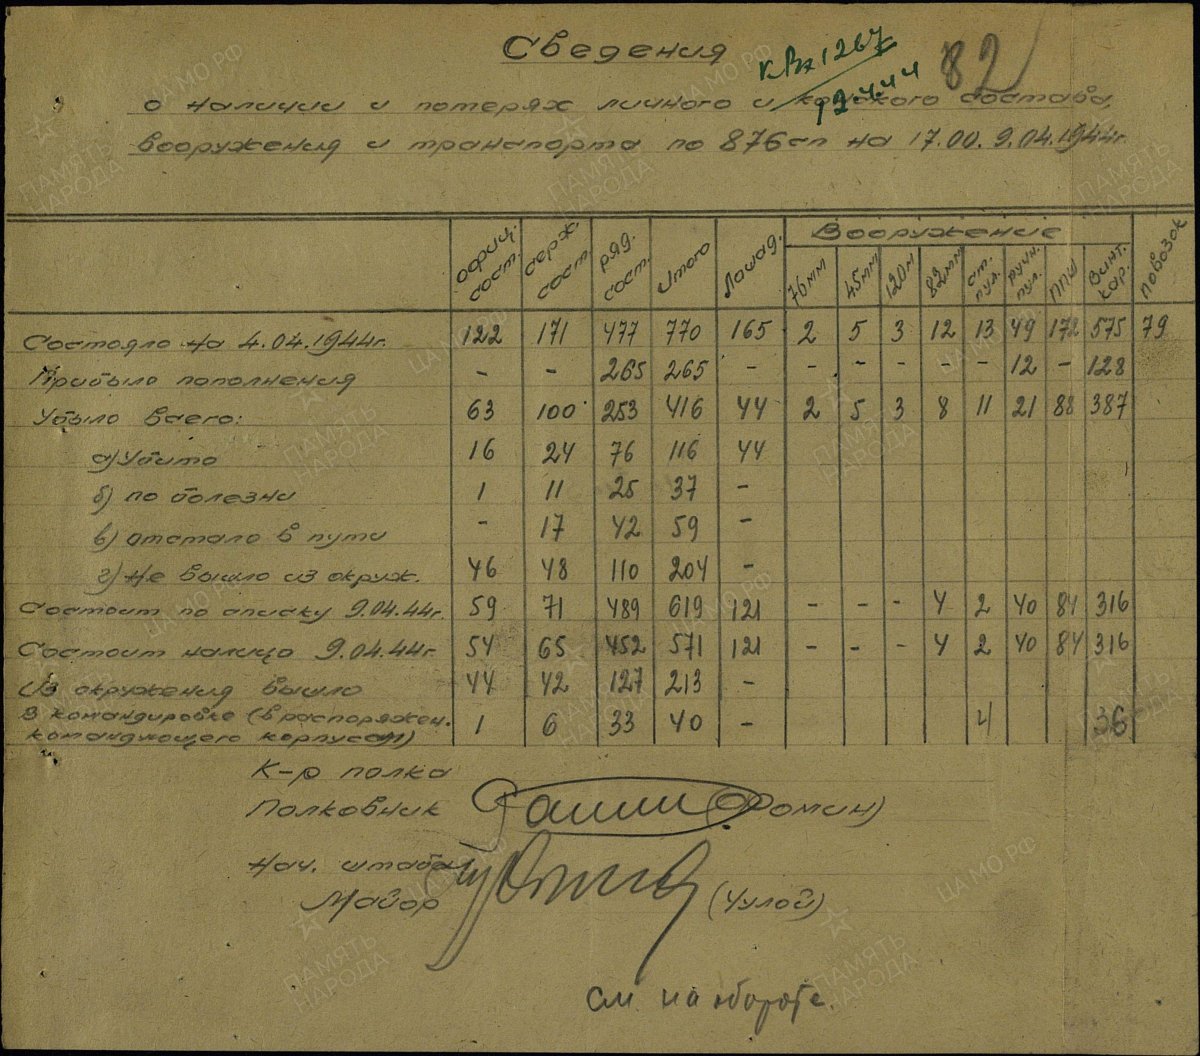 Сведения
к вх 1267
12.4.44
82
о наличии и потерях личного и конского состава,
вооружения и транспорта по 876 сп на 17.00. 9.04.1944г.
офиц. сост. серж. сост. ряд. сост. Итого Лошад. Вооружение Повозок
76мм 45мм 120м 82мм ст. пул. ручн. пул. ППШ Винт. кар.
Состояло на 4.04.1944г. 122 171 477 770 165 2 5 3 12 13 49 172 575 79
Прибыло пополнения - - 265 265 - - - - - - 12 - 128
Убыло всего: 63 100 253 416 44 2 5 3 8 11 21 88 387
а) Убито 16 24 76 116 44
б) по болезни 1 11 25 37 -
в) отстало в пути - 17 42 59 -
г) Не вышло из окруж. 46 48 110 204 -
Состоит по списку 9.04.44г. 59 71 489 619 121 - - - 4 2 40 84 316
Состоит налицо 9.04.44г 54 65 452 571 121 - - - 4 2 40 84 316
Из окружения вышло 44 42 127 213 -
В командировке (в распоряжен. командующего корпусом) 1 6 33 40 - 4 36
К-р полка
Полковник (Фомин)
Нач. штаба
Майор (Чулой)
См на обороте.
ЦА МО РФ
ПАМЯТЬ НАРОДА